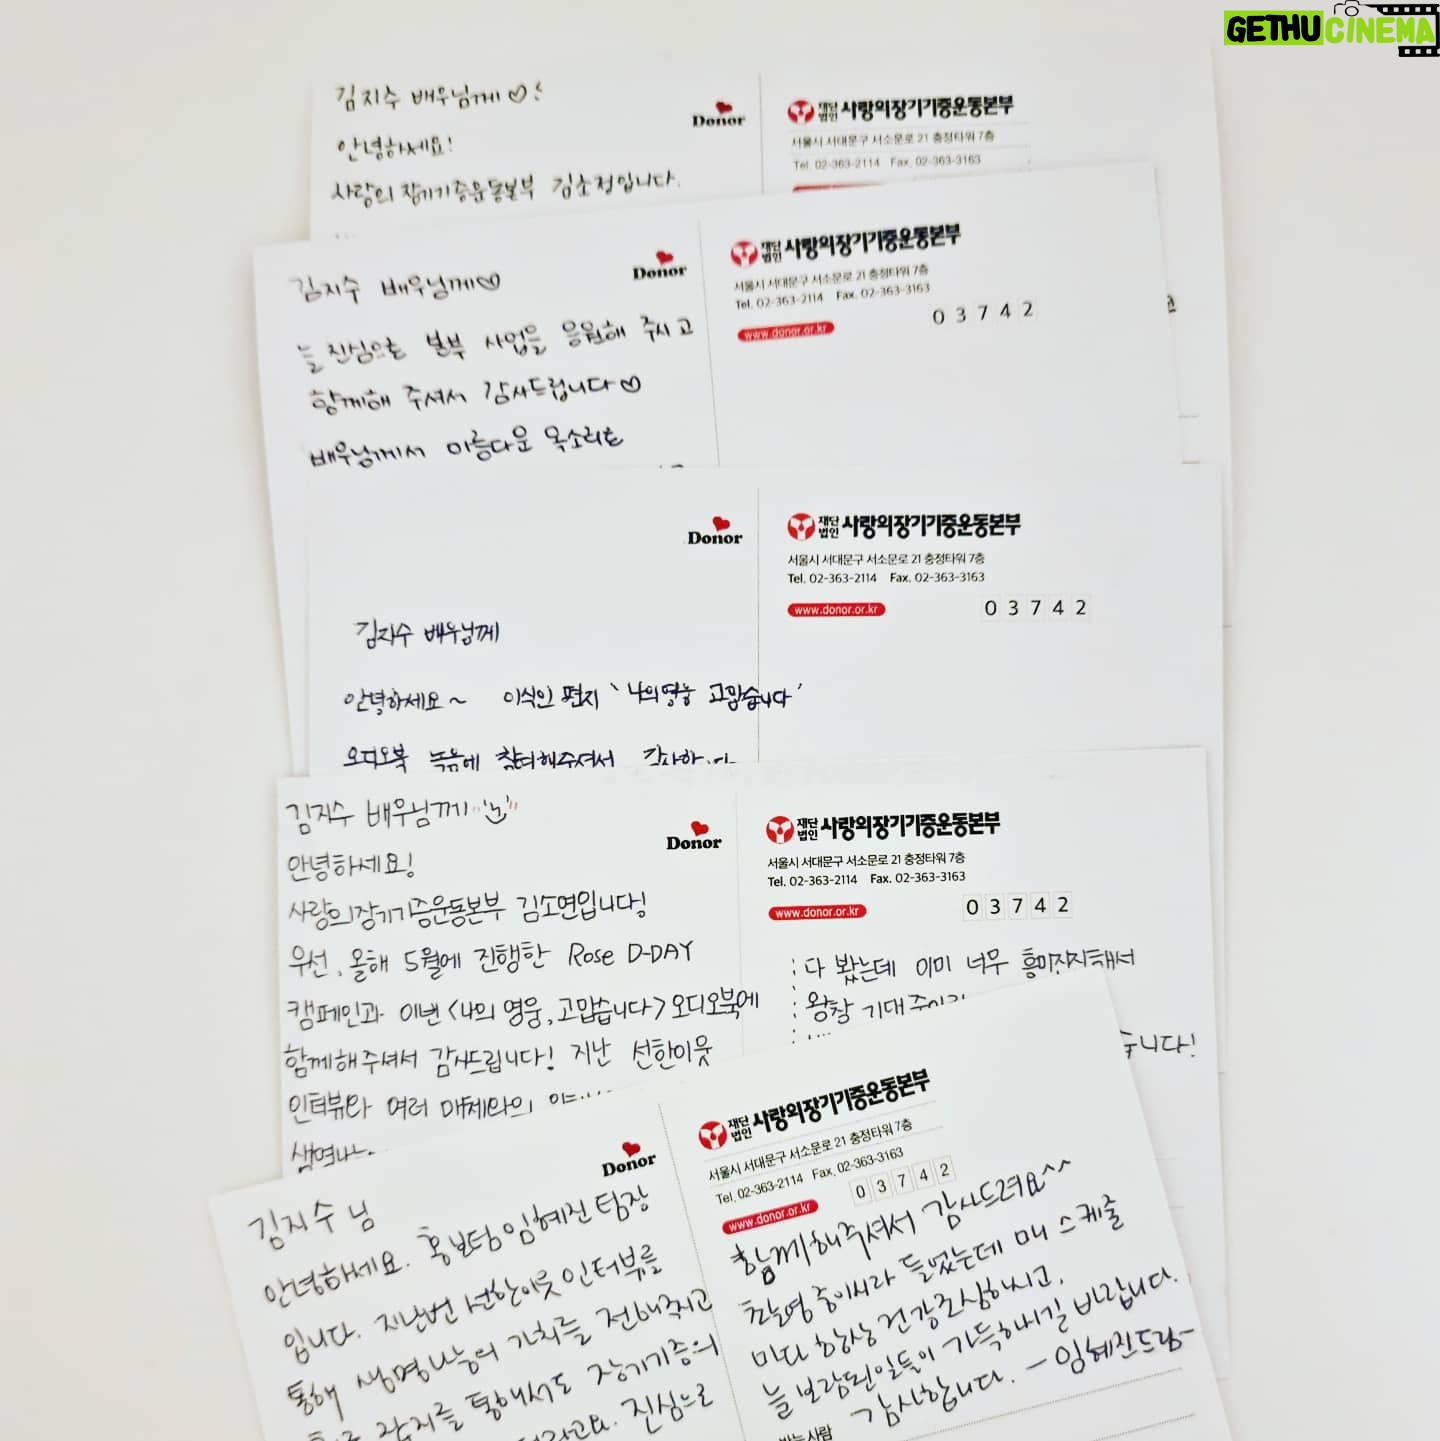 GETHUCINEMA
김지수 배우님께♡
안녕하세요!
사랑의장기기증운동본부 김소정입니다.
Donor
재단법인 사랑의장기기증운동본부
서울시 서대문구 서소문로 21 충정타워 7층
Tel. 02-363-2114 Fax. 02-363-3163
김지수 배우님께♡
늘 진심으로 본부 사업을 응원해 주시고
함께해 주셔서 감사드립니다♡
배우님께서 아름다운 목소리로
Donor
재단법인 사랑의장기기증운동본부
서울시 서대문구 서소문로 21 충정타워 7층
Tel. 02-363-2114 Fax. 02-363-3163
www.donor.or.kr
03742
Donor
김지수 배우님께
안녕하세요~ 이식인 편지 '나의영웅 고맙습니다'
오디오북 녹음에 참여해주셔서
재단법인 사랑의장기기증운동본부
서울시 서대문구 서소문로 21 충정타워 7층
Tel. 02-363-2114 Fax. 02-363-3163
www.donor.or.kr
03742
김지수 배우님께
안녕하세요!
사랑의장기기증운동본부 김소연입니다!
우선, 올해 5월에 진행한 Rose D-DAY
캠페인과 이번 <나의 영웅, 고맙습니다> 오디오북에
함께해주셔서 감사드립니다! 지난 선한이웃
인터뷰와 여러 매체와의
Donor
재단법인 사랑의장기기증운동본부
서울시 서대문구 서소문로 21 충정타워 7층
Tel. 02-363-2114 Fax. 02-363-3163
www.donor.or.kr
03742
다 봤는데 이미 너무 흥미진진해서
왕창 기대
습니다!
김지수 님
안녕하세요. 홍보팀 임혜진 팀장
입니다. 지난번 선한이웃 인터뷰를
통해 생명나눔의 가치를 전해주시고
잡지를 통해서도 장기기증의
진심으로
Donor
재단법인 사랑의장기기증운동본부
서울시 서대문구 서소문로 21 충정타워 7층
Tel. 02-363-2114 Fax. 02-363-3163
www.donor.or.kr
03742
함께해주셔서 감사드려요^^
촬영 중이시라 들었는데 매 스케줄
마다 항상 건강조심하시고,
늘 보람된일들이 가득하시길 바랍니다.
감사합니다. - 임혜진드림-
받는사람